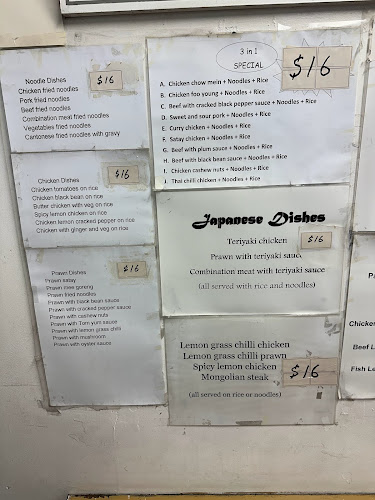 Noodle Dishes
$16
Chicken fried noodles
Pork fried noodles
Beef fried noodles
Combination meat fried noodles
Vegetables fried noodles
Cantonese fried noodles with gravy
Chicken Dishes
$16
Chicken tomatoes on rice
Chicken black bean on rice
Butter chicken with veg on rice
Spicy lemon chicken on rice
Chicken lemon cracked pepper on rice
Chicken with ginger and veg on rice
Prawn Dishes
$16
Prawn satay
Prawn mee goreng
Prawn fried noodles
Prawn with black bean sauce
Prawn with cracked pepper sauce
Prawn with cashew nuts
Prawn with Tom yum sauce
Prawn with lemon grass chilli
Prawn with mushroom
Prawn with oyster sauce
3 in 1
SPECIAL
$16
A. Chicken chow mein + Noodles + Rice
B. Chicken foo young + Noodles + Rice
C. Beef with cracked black pepper sauce + Noodles + Rice
D. Sweet and sour pork + Noodles + Rice
E. Curry chicken + Noodles + Rice
F. Satay chicken + Noodles + Rice
G. Beef with plum sauce + Noodles + Rice
H. Beef with black bean sauce + Noodles + Rice
I. Chicken cashew nuts + Noodles + Rice
J. Thai chilli chicken + Noodles + Rice
Japanese Dishes
Teriyaki chicken
$16
Prawn with teriyaki sauce
Combination meat with teriyaki sauce
(all served with rice and noodles)
Lemon grass chilli chicken
Lemon grass chilli prawn
Spicy lemon chicken
Mongolian steak
$16
(all served on rice or noodles)
Chicken
Beef L
Fish L